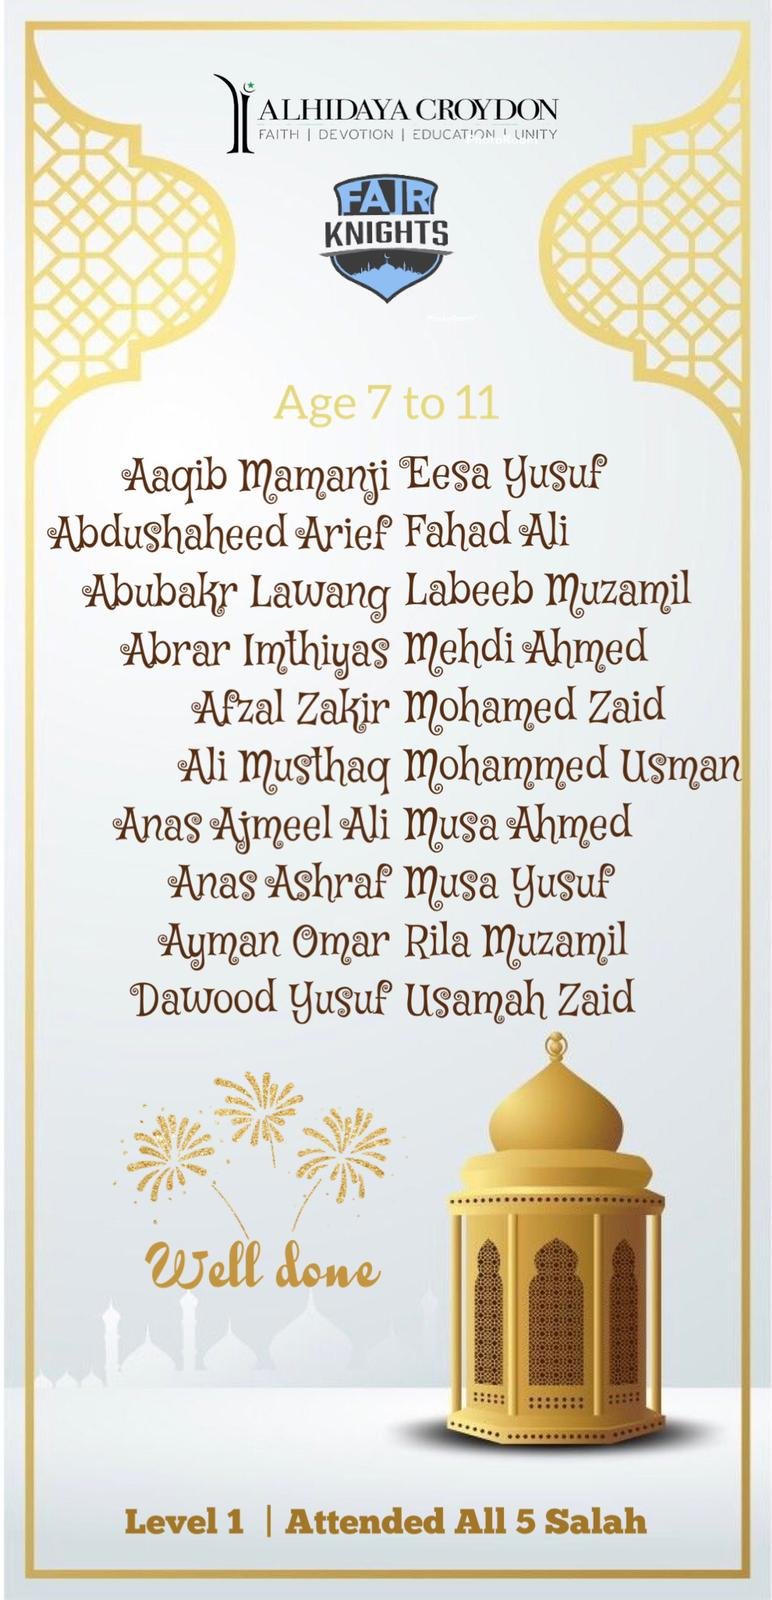 ALHIDAYA CROYDON
FAITH | DEVOTION | EDUCATION | UNITY
FAJR
KNIGHTS
Age 7 to 11
Aaqib Mamanji Eesa Yusuf
Abdushaheed Arief Fahad Ali
Abubakr Lawang Labeeb Muzamil
Abrar Imthiyas Mehdi Ahmed
Afzal Zakir Mohamed Zaid
Ali Musthaq Mohammed Usman
Anas Ajmeel Ali Musa Ahmed
Anas Ashraf Musa Yusuf
Ayman Omar Rila Muzamil
Dawood Yusuf Usamah Zaid
Well done
Level 1 | Attended All 5 Salah